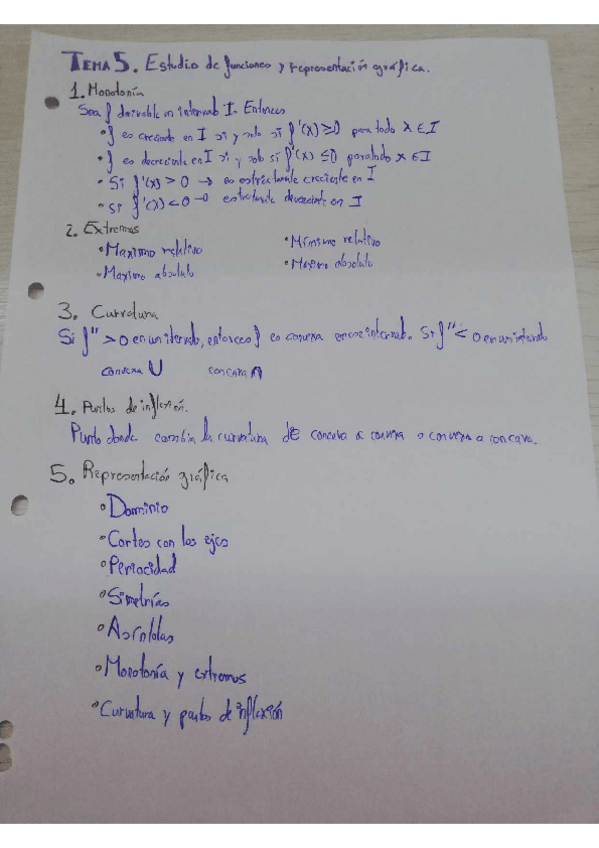 TEMA 5. Estudio de funciones y representación gráfica.
1. Monotonía
Sea f derivable en intervalo I. Entonces
• f es creciente en I si y solo si f'(x) ≥ 0 para todo x ∈ I
• f es decreciente en I si y solo si f'(x) ≤ 0 para todo x ∈ I
• Si f'(x) > 0 → es estrictamente creciente en I
• Si f'(x) < 0 → estrictamente decreciente en I
2. Extremos
• Maximo relativo • Mínimo relativo
• Maximo absoluto • absoluto
3. Curvatura
Si f'' > 0 en un intervalo, entonces f es convexa en ese intervalo. Si f'' < 0 en un intervalo
convexa ∪ concava ∩
4. Puntos de inflexión.
Punto donde cambia la curvatura de concava a convexa o convexa a concava.
5. Representación gráfica
• Dominio
• Cortes con los ejes
• Periocidad
• Simetrías
• Asíntotas
• Monotonía y extremos
• Curvatura y puntos de inflexión